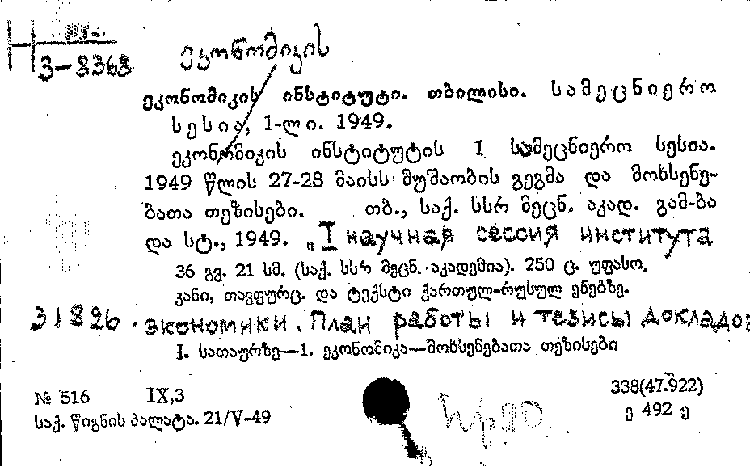 3-8368
ეკონომიკის
ეკონომიკის ინსტიტუტი. თბილისი. სამეცნიერო
სესია, 1-ლი. 1949.
ეკონომიკის ინსტიტუტის I სამეცნიერო სესია.
1949 წლის 27-28 მაისს მუშაობის გეგმა და მოხსენე-
ბათა თეზისები. თბ., საქ. სსრ მეცნ. აკად. გამ-ბა
და სტ., 1949. „I научная сессия института
36 გვ. 21 სმ. (საქ. სსრ მეცნ. აკადემია). 250 ც. უფასო.
კანი, თავფურც. და ტექსტი ქართულ-რუსულ ენებზე.
31826. экономики. План работы и тезисы докладов
I. სათაურზე—1. ეკონომიკა—მოხსენებათა თეზისები
№ 516 IX,3 338(47.922)
საქ. წიგნის პალატა. 21/V-49 ე 492 ე